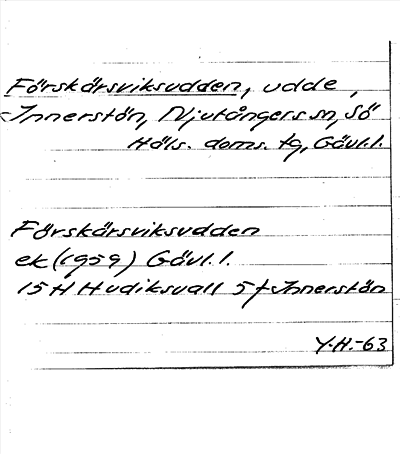 Förskärsviksudden, udde,
Innerstön, Njutångers sn, Sö
Häls. doms. tg, Gävl.l.
Förskärsviksudden
ek (1959) Gävl.l.
15 H Hudiksvall 5 f Innerstön
Y.H.-63